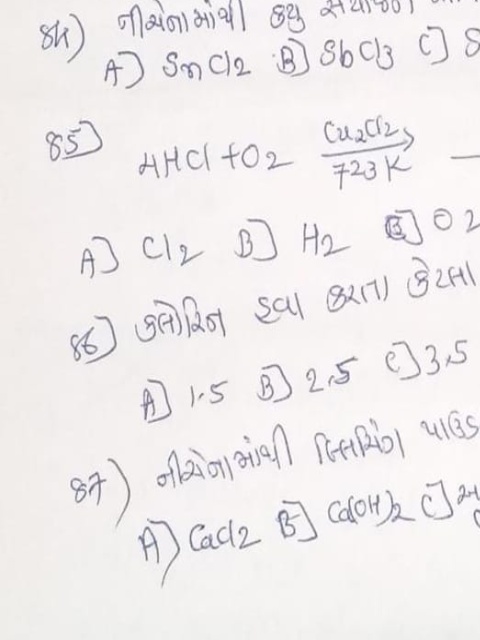 84) નીચેનામાંથી કયુ સંયોજન
A] SnCl2 B] SbCl3 C] S
85]
4HCl + O2 Cu2Cl2 723 K
A] Cl2 B] H2 C] O2
86] ક્લોરિન હવા કરતા કેટલા
A] 1.5 B] 2.5 C] 3.5
87) નીચેનામાંથી બ્લિચિંગ પાઉડ
A) CaCl2 B] Ca(OH)2 C]